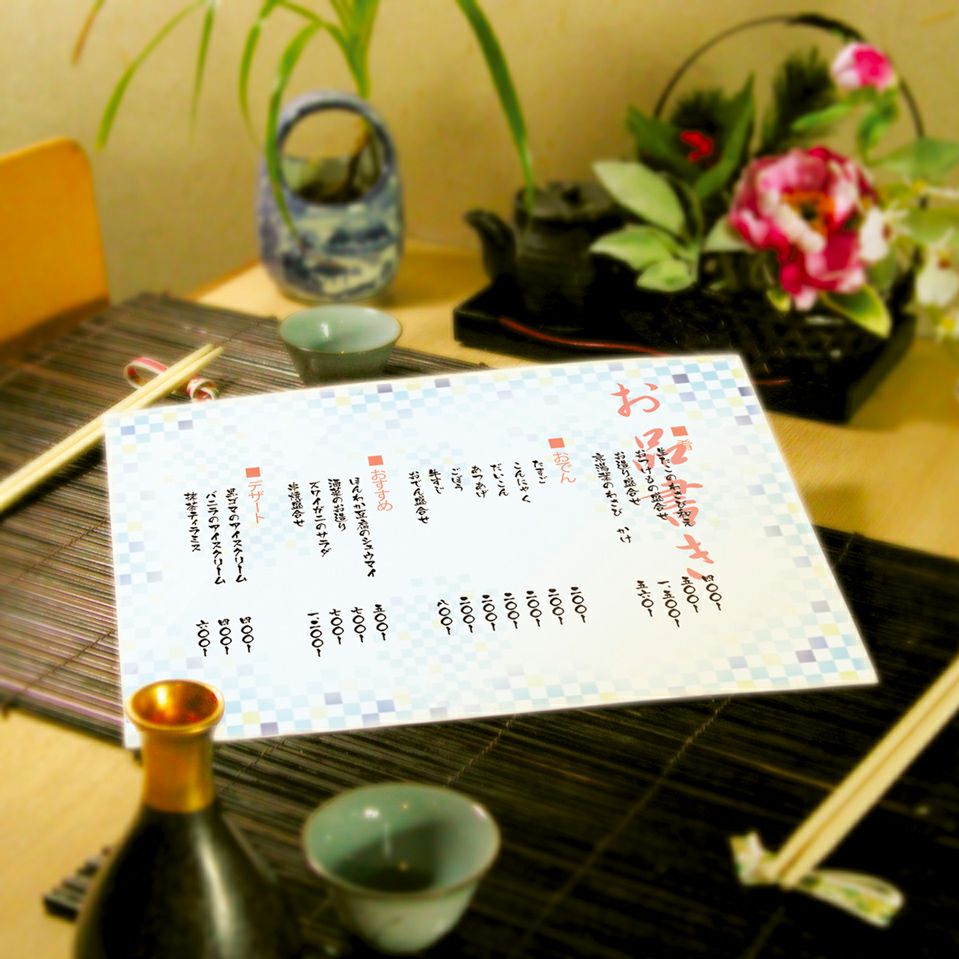 お品書き
■肴
生だこのわさび和え 四〇〇~
おつけもの盛合せ 五〇〇~
お造り盛合せ 一、五〇〇~
かけ 五六〇~
■おでん
たまご 二〇〇~
こんにゃく 二〇〇~
だいこん 二〇〇~
あつあげ 二〇〇~
ごぼう 二〇〇~
牛すじ 二〇〇~
おでん盛合せ 八〇〇~
■おすすめ
ほんわか豆腐のシュウマイ 五〇〇~
海藻のお造り 七〇〇~
ズワイガニのサラダ 七〇〇~
串焼盛合せ 一、二〇〇~
■デザート
黒ゴマのアイスクリーム 四〇〇~
バニラのアイスクリーム 四〇〇~
抹茶ティラミス 六〇〇~